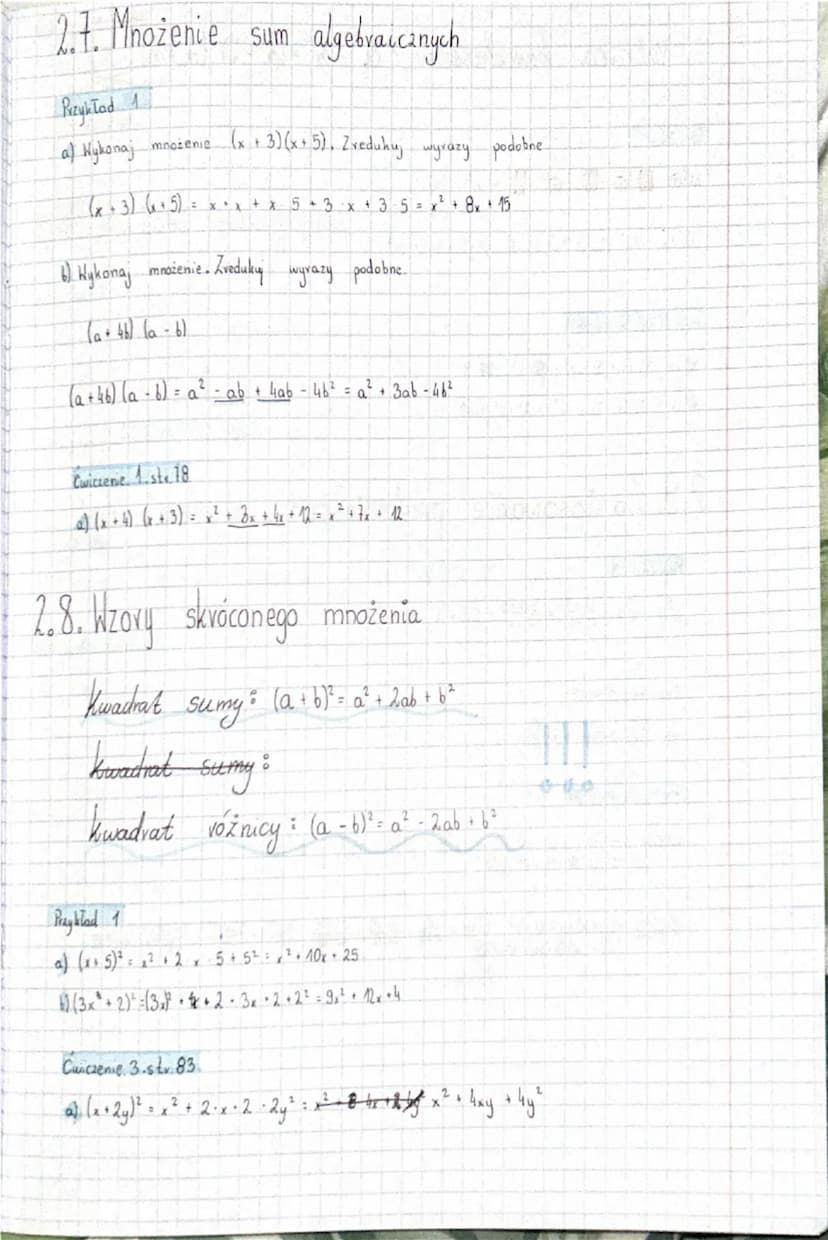 2.7. Mnożenie sum algebraicznych
Przykład 1
a) Wykonaj mnożenie (x + 3)(x + 5). Zredukuj wyrazy podobne
(x + 3) (x + 5) = x · x + x · 5 + 3 · x + 3 · 5 = x² + 8x + 15
b) Wykonaj mnożenie. Zredukuj wyrazy podobne.
(a + 4b) (a - b)
(a + 4b) (a - b) = a² - ab + 4ab - 4b² = a² + 3ab - 4b²
Ćwiczenie. 1. str. 78
a) (x + 4) (x + 3) = x² + 3x + 4x + 12 = x² + 7x + 12
2.8. Wzory skróconego mnożenia
Kwadrat sumy: (a + b)² = a² + 2ab + b²
!!!
kwadrat sumy:
kwadrat różnicy: (a - b)² = a² - 2ab + b²
Przykład 1
a) (x + 5)² = x² + 2 x · 5 + 5² = x² + 10x + 25
b) (3x + 2)² = (3x)² + 2 · 3x · 2 + 2² = 9x² + 12x + 4
Ćwiczenie. 3. str. 83
a) (x + 2y)² = x² + 2 · x · 2 · 2y² = x² + 4xy + 4y²